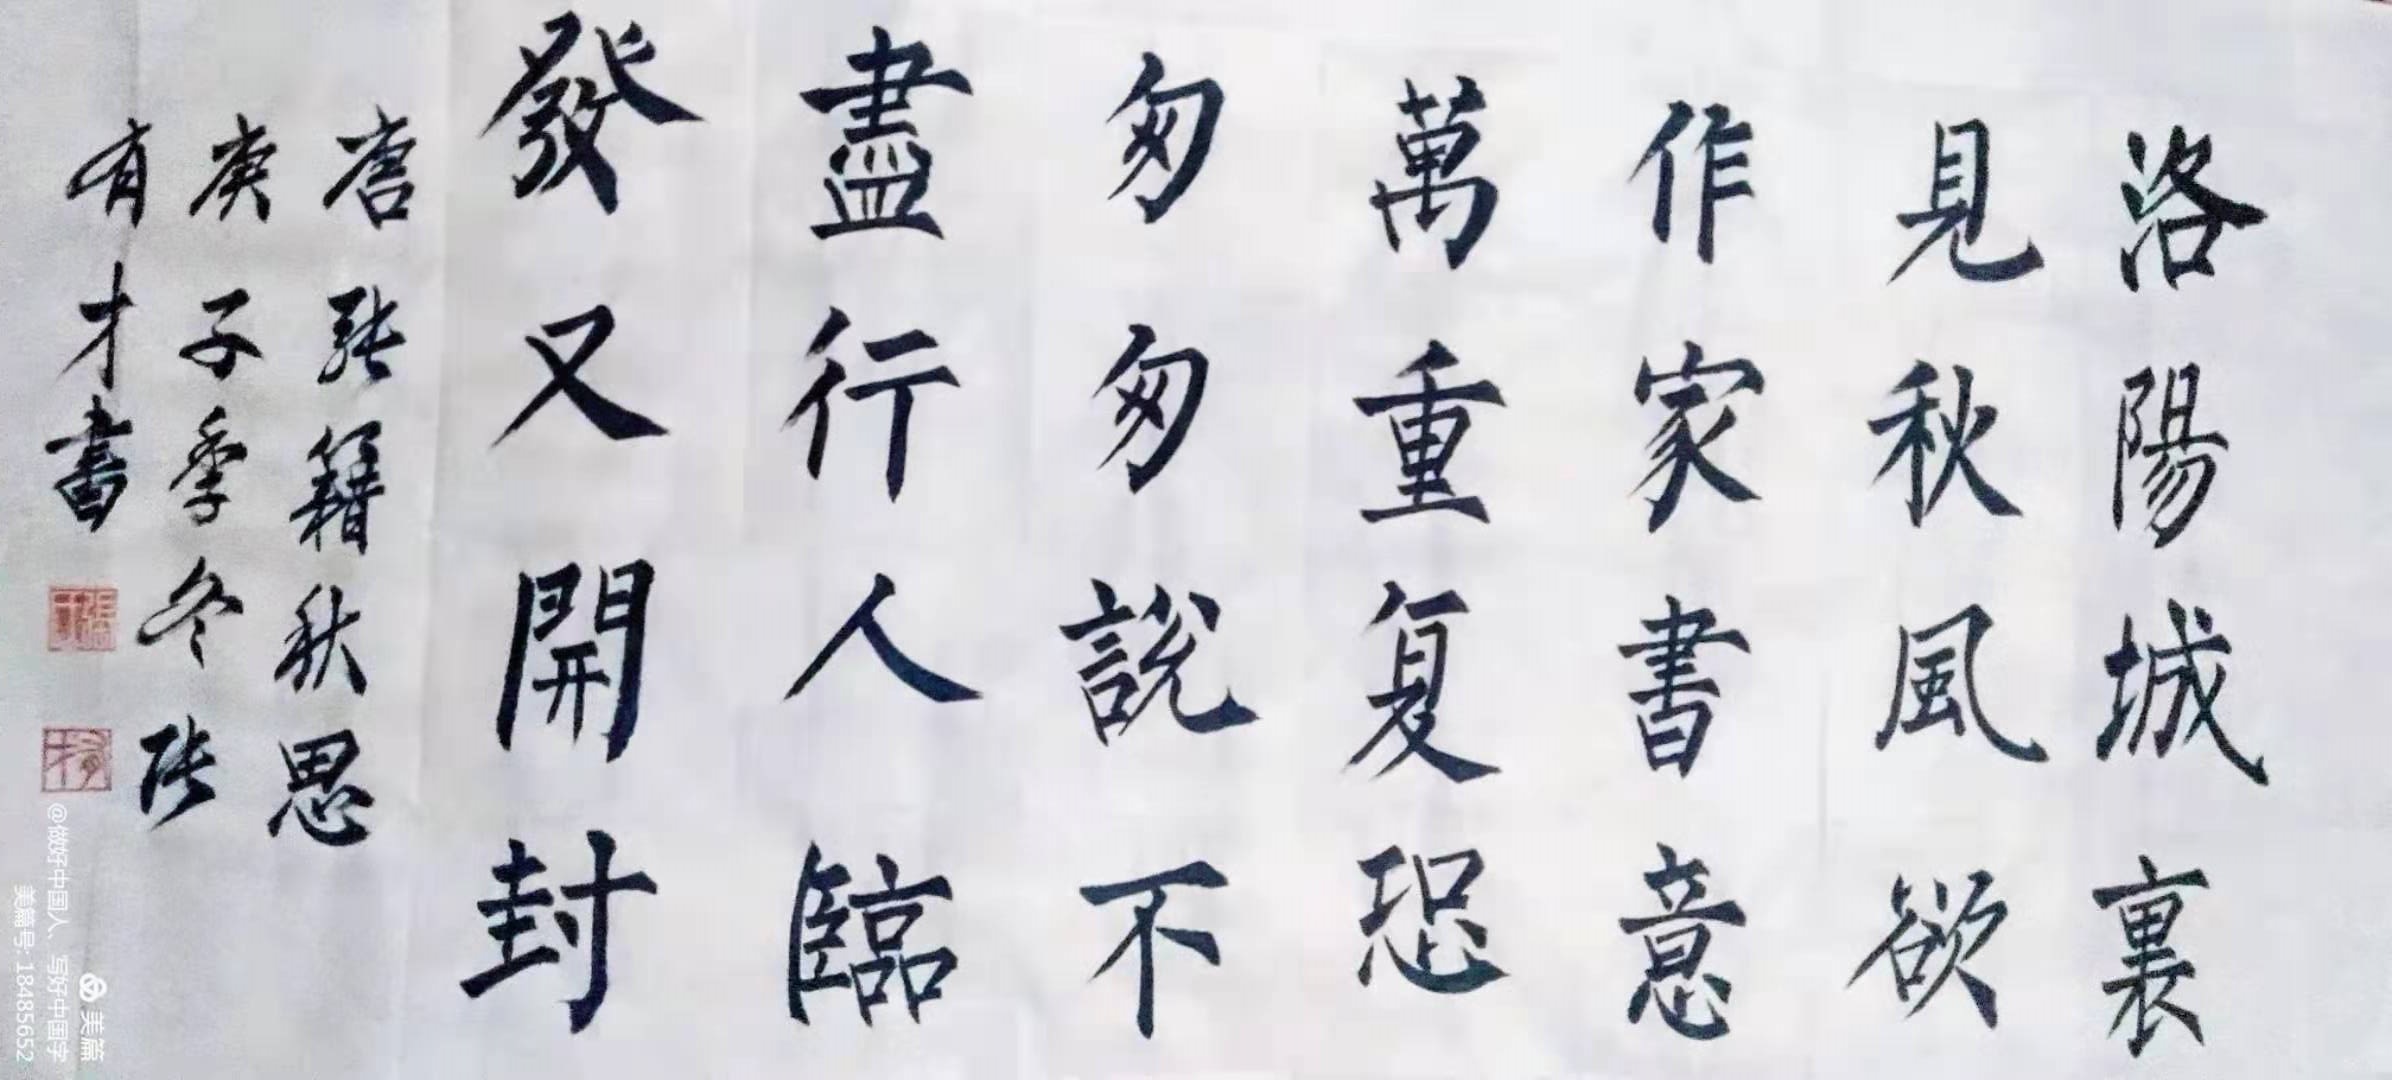 洛陽城裏
見秋風欲
作家書意
萬重复恐
匆匆說不
盡行人臨
發又開封
唐张籍秋思
庚子季冬张
有才書
美篇
@做好中国人、写好中国字
美篇号: 18485652